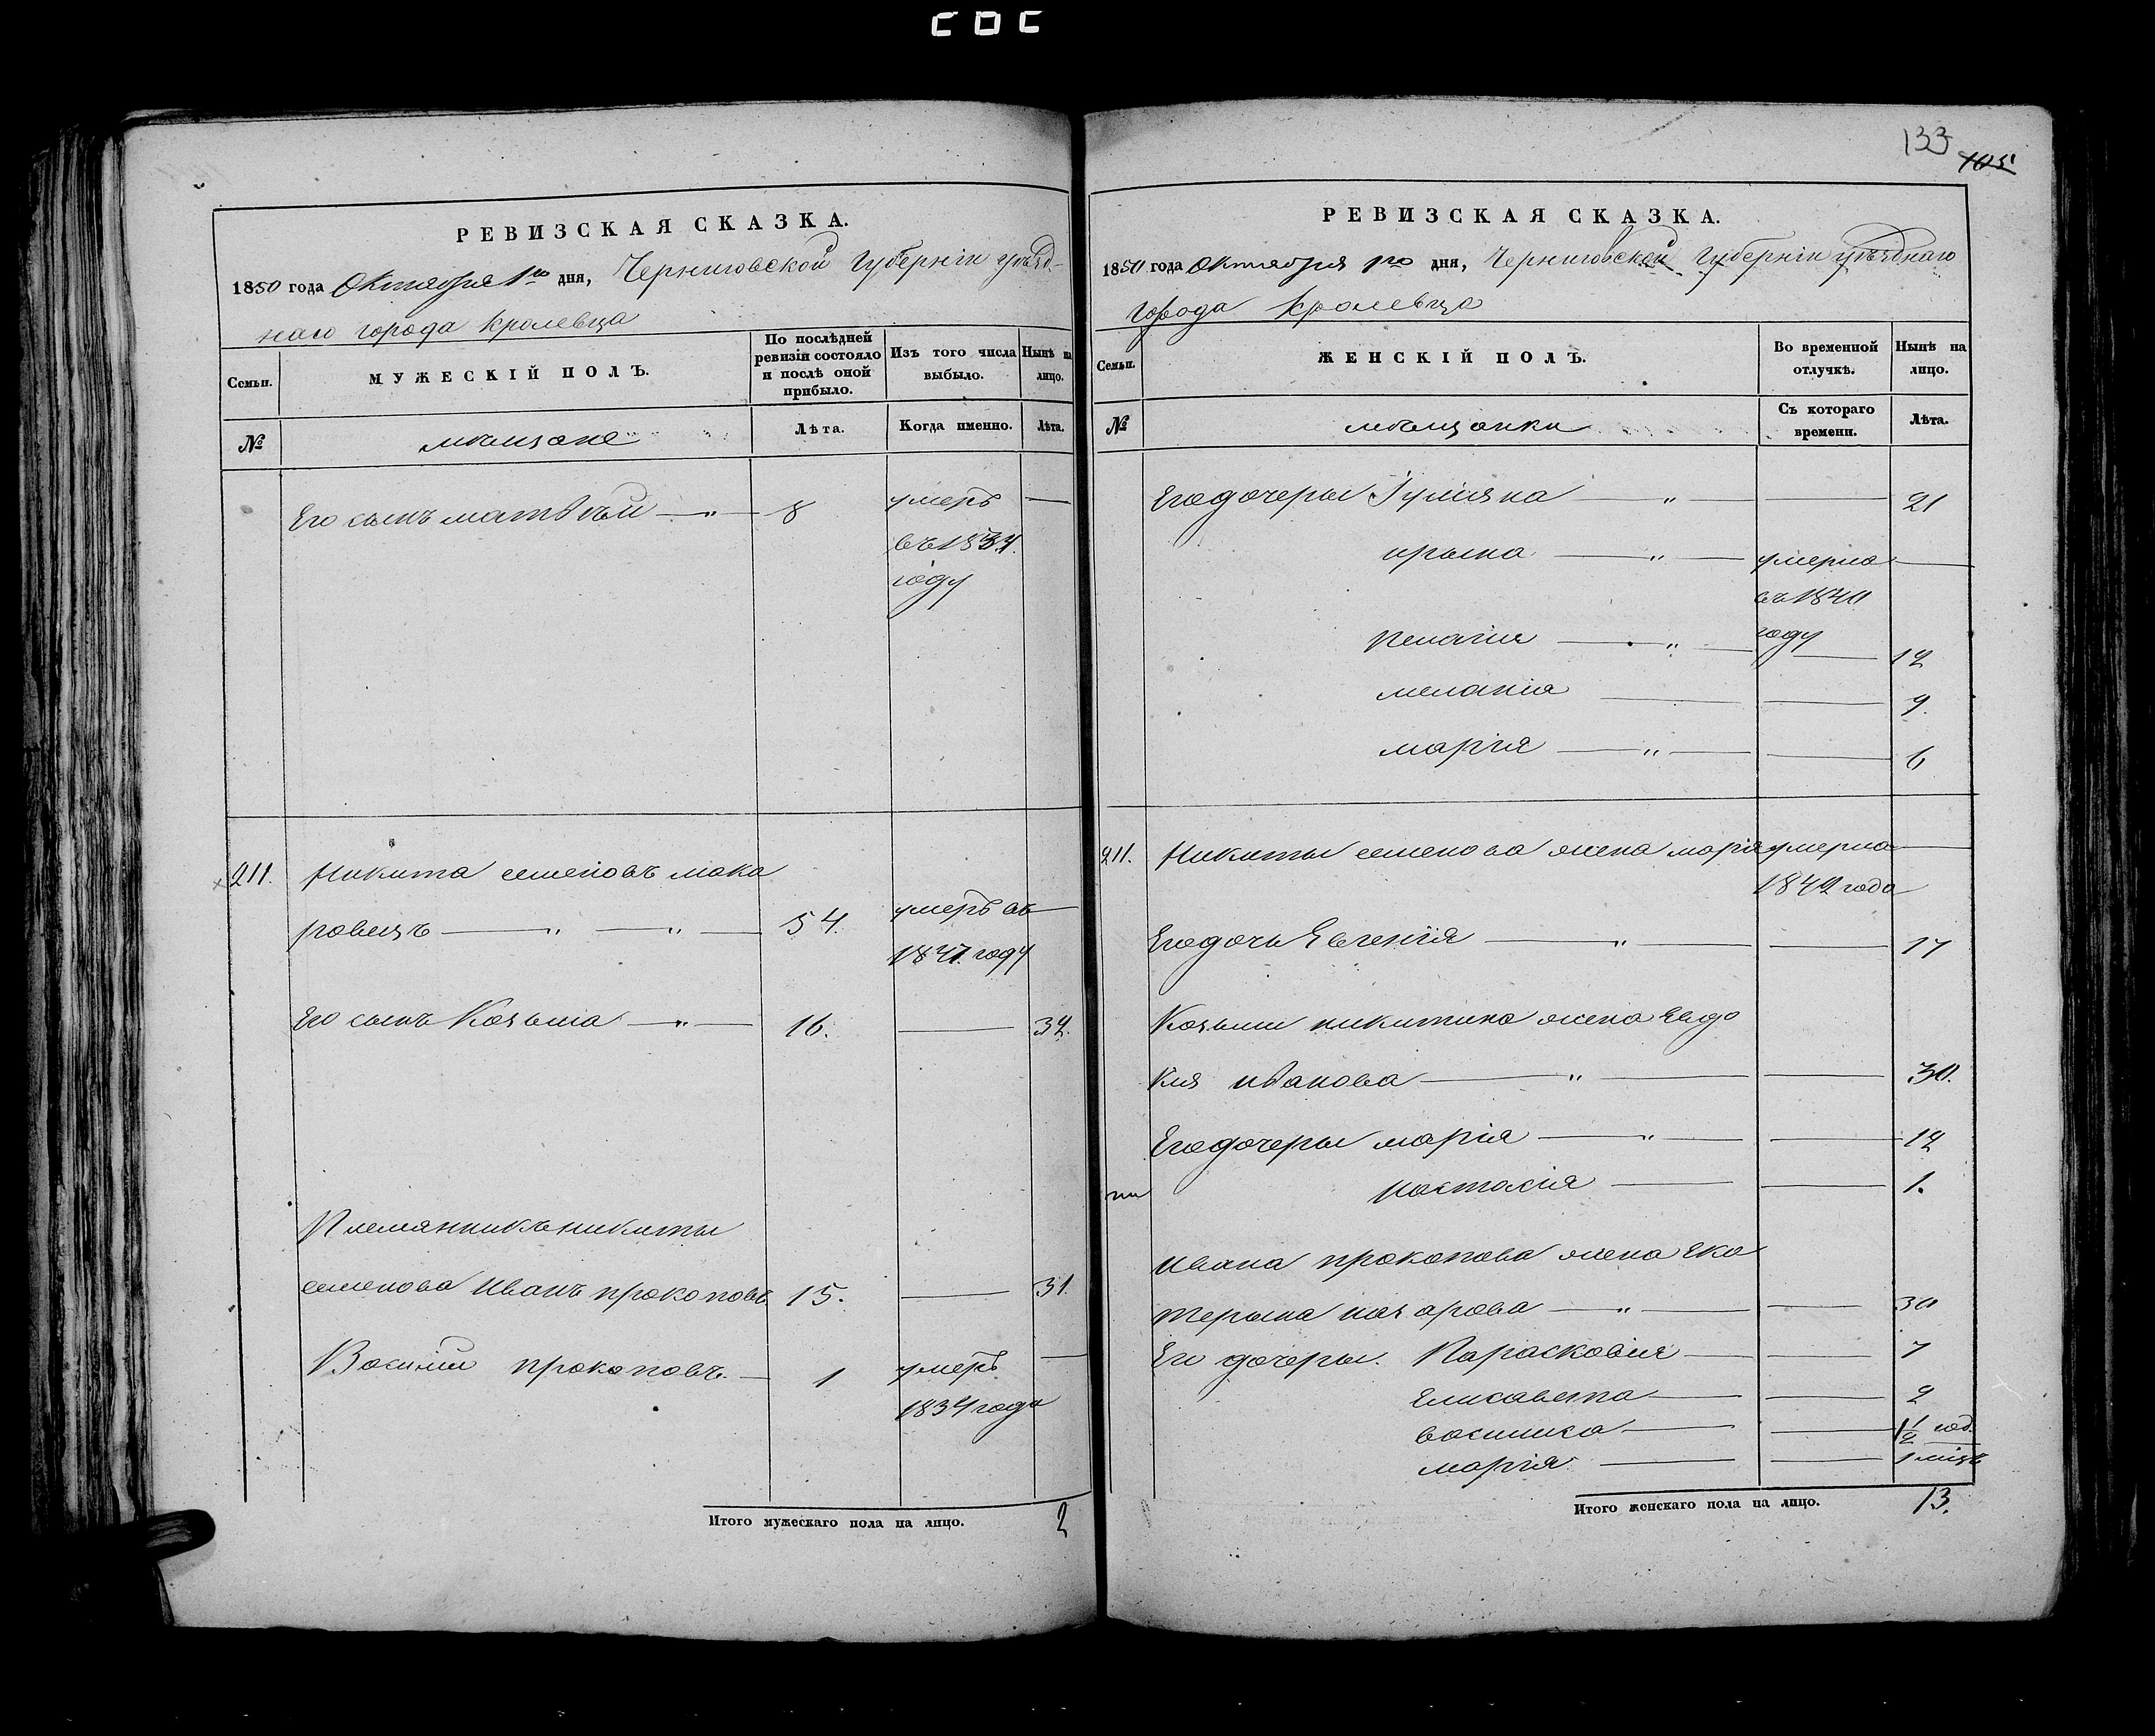 РЕВИЗСКАЯ СКАЗКА.
1850 года Октября 1го дня, Черниговской Губернiи уѣзд-
наго города Кролевца
Семьи.
МУЖЕСКIЙ ПОЛЪ.
По послѣдней ревизiи состояло и послѣ оной прибыло.
Изъ того числа выбыло.
Нынѣ на лицо.
№
мѣщане
Лѣта.
Когда именно.
Лѣта.
Его сынъ матвѣй — „ — 8 умеръ —
въ 1834.
году
211. Никита семеновъ мака
ровецъ — „ — „ — 54. умеръ въ —
1841. году
Его сынъ Козьма — „ — 16. — 32.
Племянникъ никиты
семенова Иванъ прокоповъ 15. — 31.
Василий прокоповъ. — 1 умеръ —
1834 года
Итого мужескаго пола на лицо. 2
133
105
РЕВИЗСКАЯ СКАЗКА.
1850 года Октября 1го дня, Черниговской Губернiи уѣзднаго
города Кролевца
Семьи.
ЖЕНСКIЙ ПОЛЪ.
Во временной отлучкѣ.
Нынѣ на лицо.
№
мѣщанки
Съ котораго времени.
Лѣта.
Его дочеры Iулияна — „ — 21
ирына — „ — умерла —
въ 1840
году
пелагия — „ — 12
меланiя — 9.
марiя — „ — 6
211. Никиты семенова жена марiя умерла —
1842 года
Его дочь Евгенiя — „ — 17
Козьми никитина жена Евдо
кия иванова — „ — 30.
Его дочеры марiя — „ — 12
настасiя — 1.
Ивана прокопова жена Ека
терына назарова — „ — 30
Его дочеры. Парасковiя — 7
Елисавета — 2
василиса — 1½ год.
марiя — 1 мiсц
Итого женскаго пола на лицо. 13.